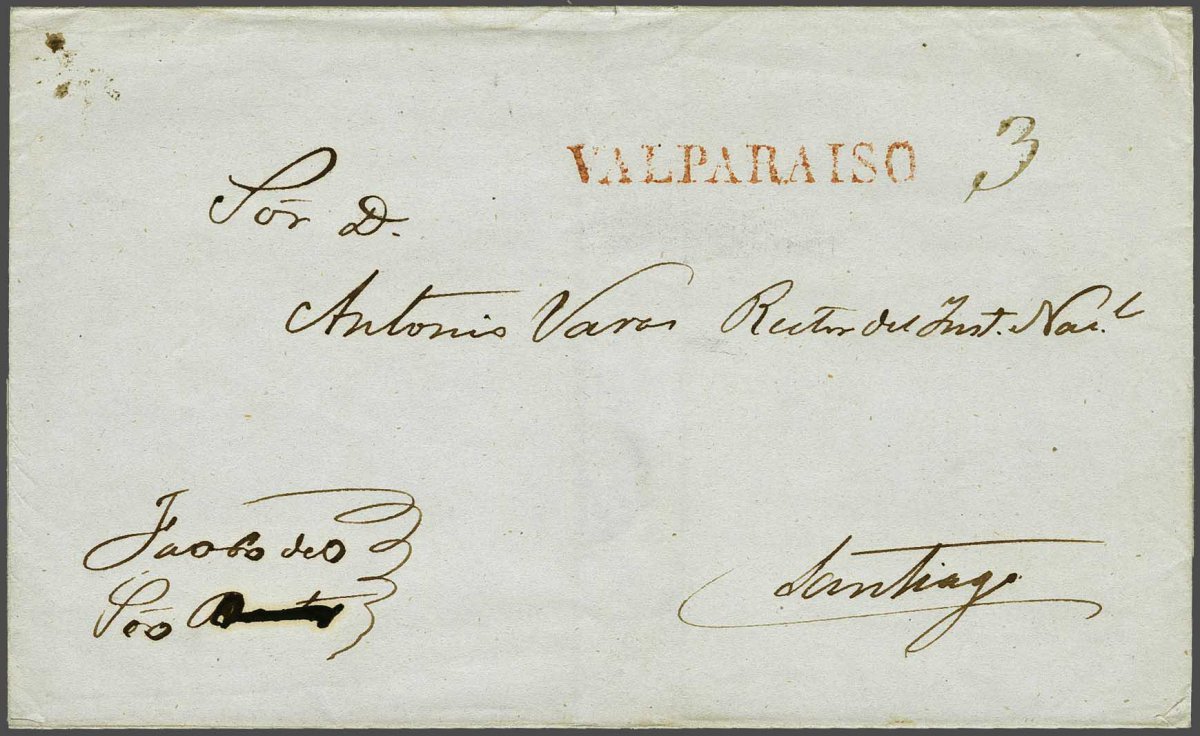 VALPARAISO 3
Sor D.
Antonio Varas Rector del Inst. Nac.l
Santiago